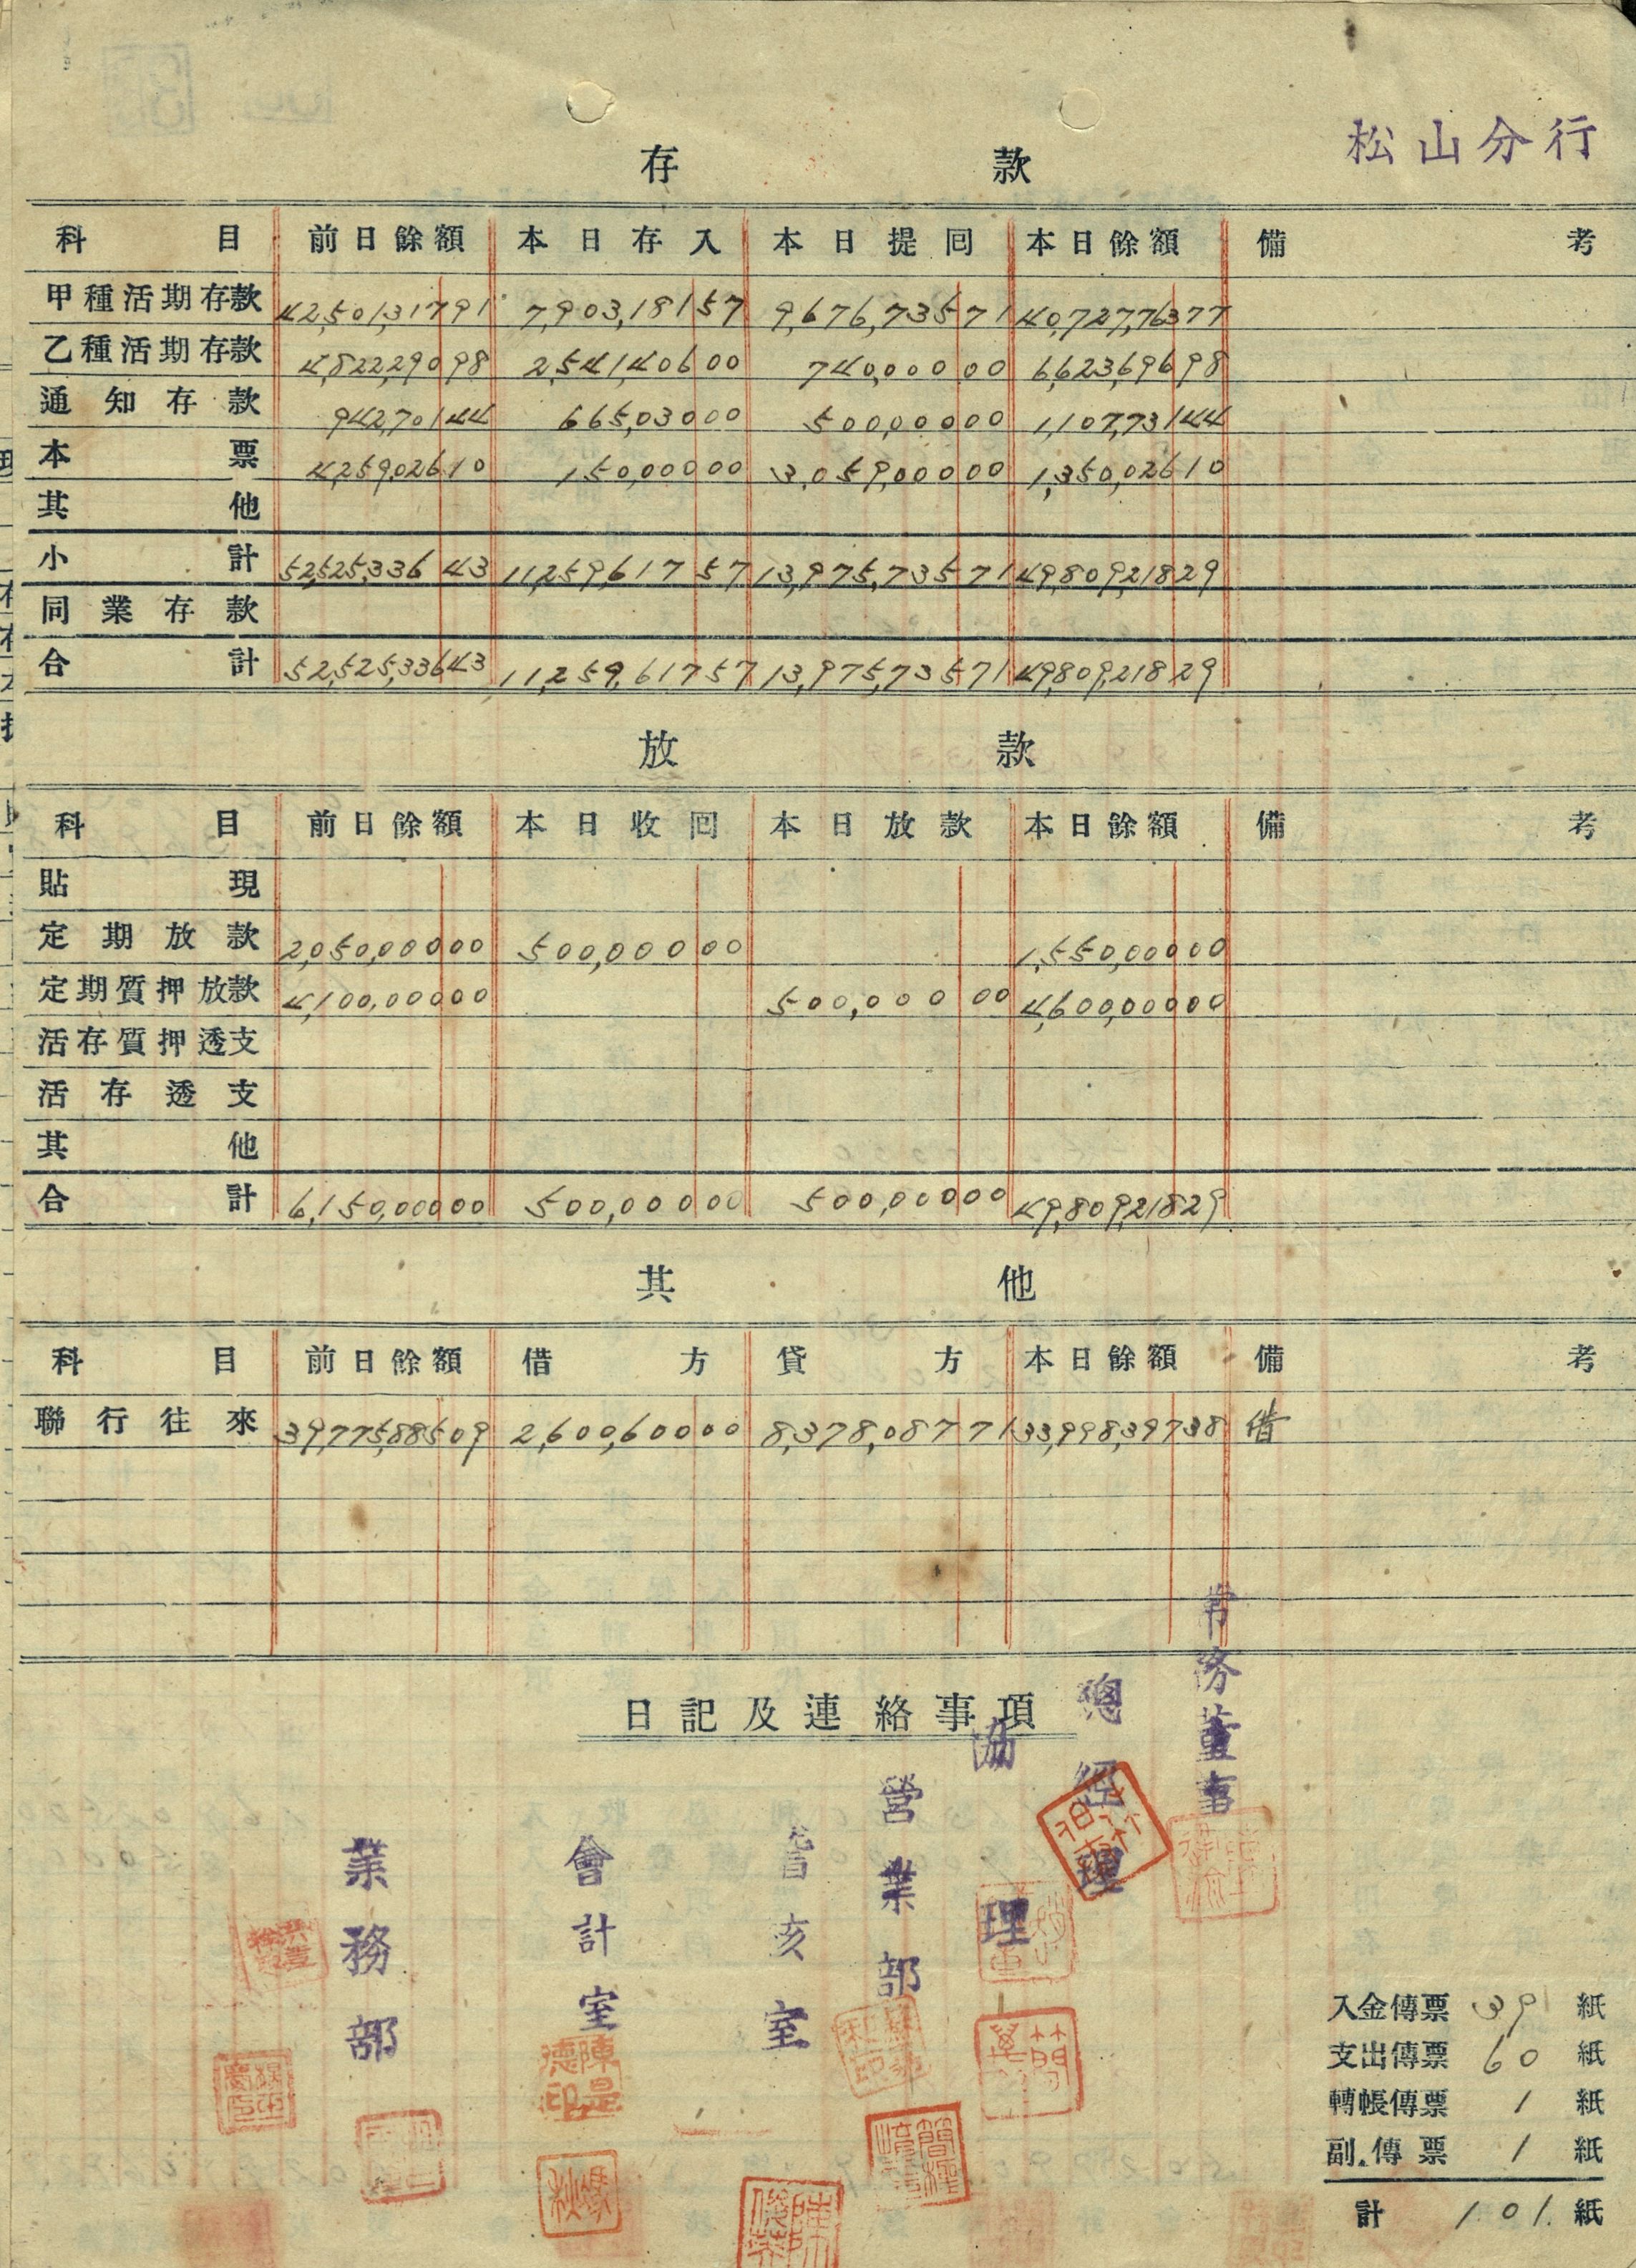 松山分行
存款
科目 前日餘額 本日存入 本日提囘 本日餘額 備考
甲種活期存款 42,501,317 91 7,903,181 57 9,676,735 71 40,727,763 77
乙種活期存款 4,822,290 98 2,541,406 00 740,000 00 6,623,696 98
通知存款 942,701 44 665,030 00 500,000 00 1,107,731 44
本票 4,259,026 10 150,000 00 3,059,000 00 1,350,026 10
其他
小計 52,525,336 43 11,259,617 57 13,975,735 71 49,809,218 29
同業存款
合計 52,525,336 43 11,259,617 57 13,975,735 71 49,809,218 29
放款
科目 前日餘額 本日收囘 本日放款 本日餘額 備考
貼現
定期放款 2,050,000 00 500,000 00 1,550,000 00
定期質押放款 4,100,000 00 500,000 00 4,600,000 00
活存質押透支
活存透支
其他
合計 6,150,000 00 500,000 00 500,000 00 49,809,218 29
其他
科目 前日餘額 借方 貸方 本日餘額 備考
聯行往來 39,775,885 09 2,600,600 00 8,378,087 71 33,998,397 38 借
日記及連絡事項
常務董事
總經理
協理
營業部
稽亥室
會計室
業務部
入金傳票 39 紙
支出傳票 60 紙
轉帳傳票 1 紙
副傳票 1 紙
計 101 紙